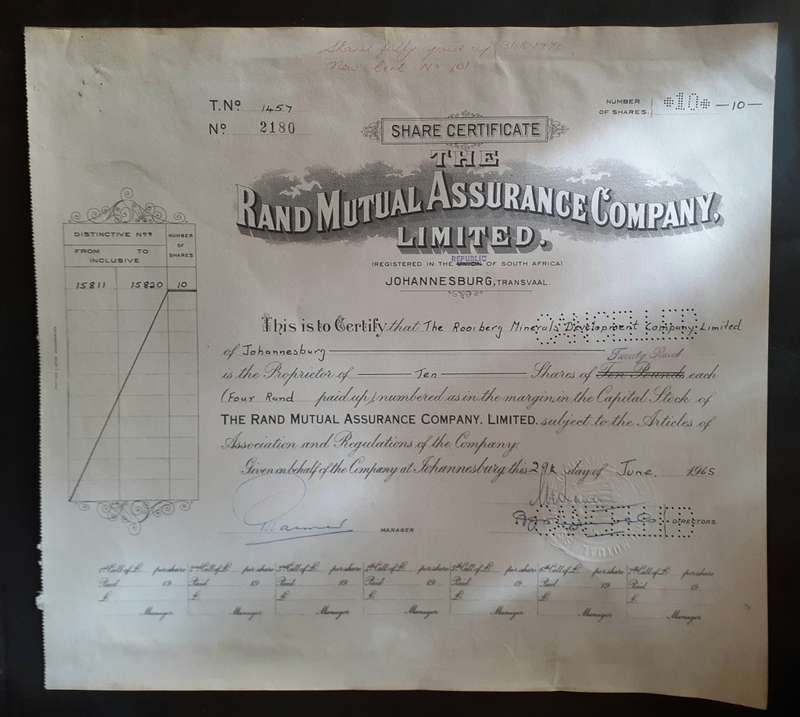 Share fully paid up
New Cert No 101
T. No 1457
No 2180
SHARE CERTIFICATE
NUMBER OF SHARES *10* —10—
THE
RAND MUTUAL ASSURANCE COMPANY,
LIMITED.
REPUBLIC
(REGISTERED IN THE UNION OF SOUTH AFRICA)
JOHANNESBURG, TRANSVAAL.
DISTINCTIVE Nos
NUMBER OF SHARES
FROM TO
INCLUSIVE
15811 15820 10
CANCELLED
This is to Certify that The Rooiberg Minerals Development Company Limited
of Johannesburg
Twenty Rand
is the Proprietor of Ten Shares of Ten Pounds each
(Four Rand paid up) numbered as in the margin, in the Capital Stock of
THE RAND MUTUAL ASSURANCE COMPANY, LIMITED. subject to the Articles of
Association and Regulations of the Company.
Given on behalf of the Company at Johannesburg this 29th day of June 1965
MANAGER
CANCELLED
DIRECTORS
1st Call of £ per share 2nd Call of £ per share 3rd Call of £ per share 4th Call of £ per share 5th Call of £ per share 6th Call of £ per share 7th Call of £ per share
Paid 19 Paid 19 Paid 19 Paid 19 Paid 19 Paid 19 Paid 19
£ £ £ £ £ £ £
Manager Manager Manager Manager Manager Manager Manager